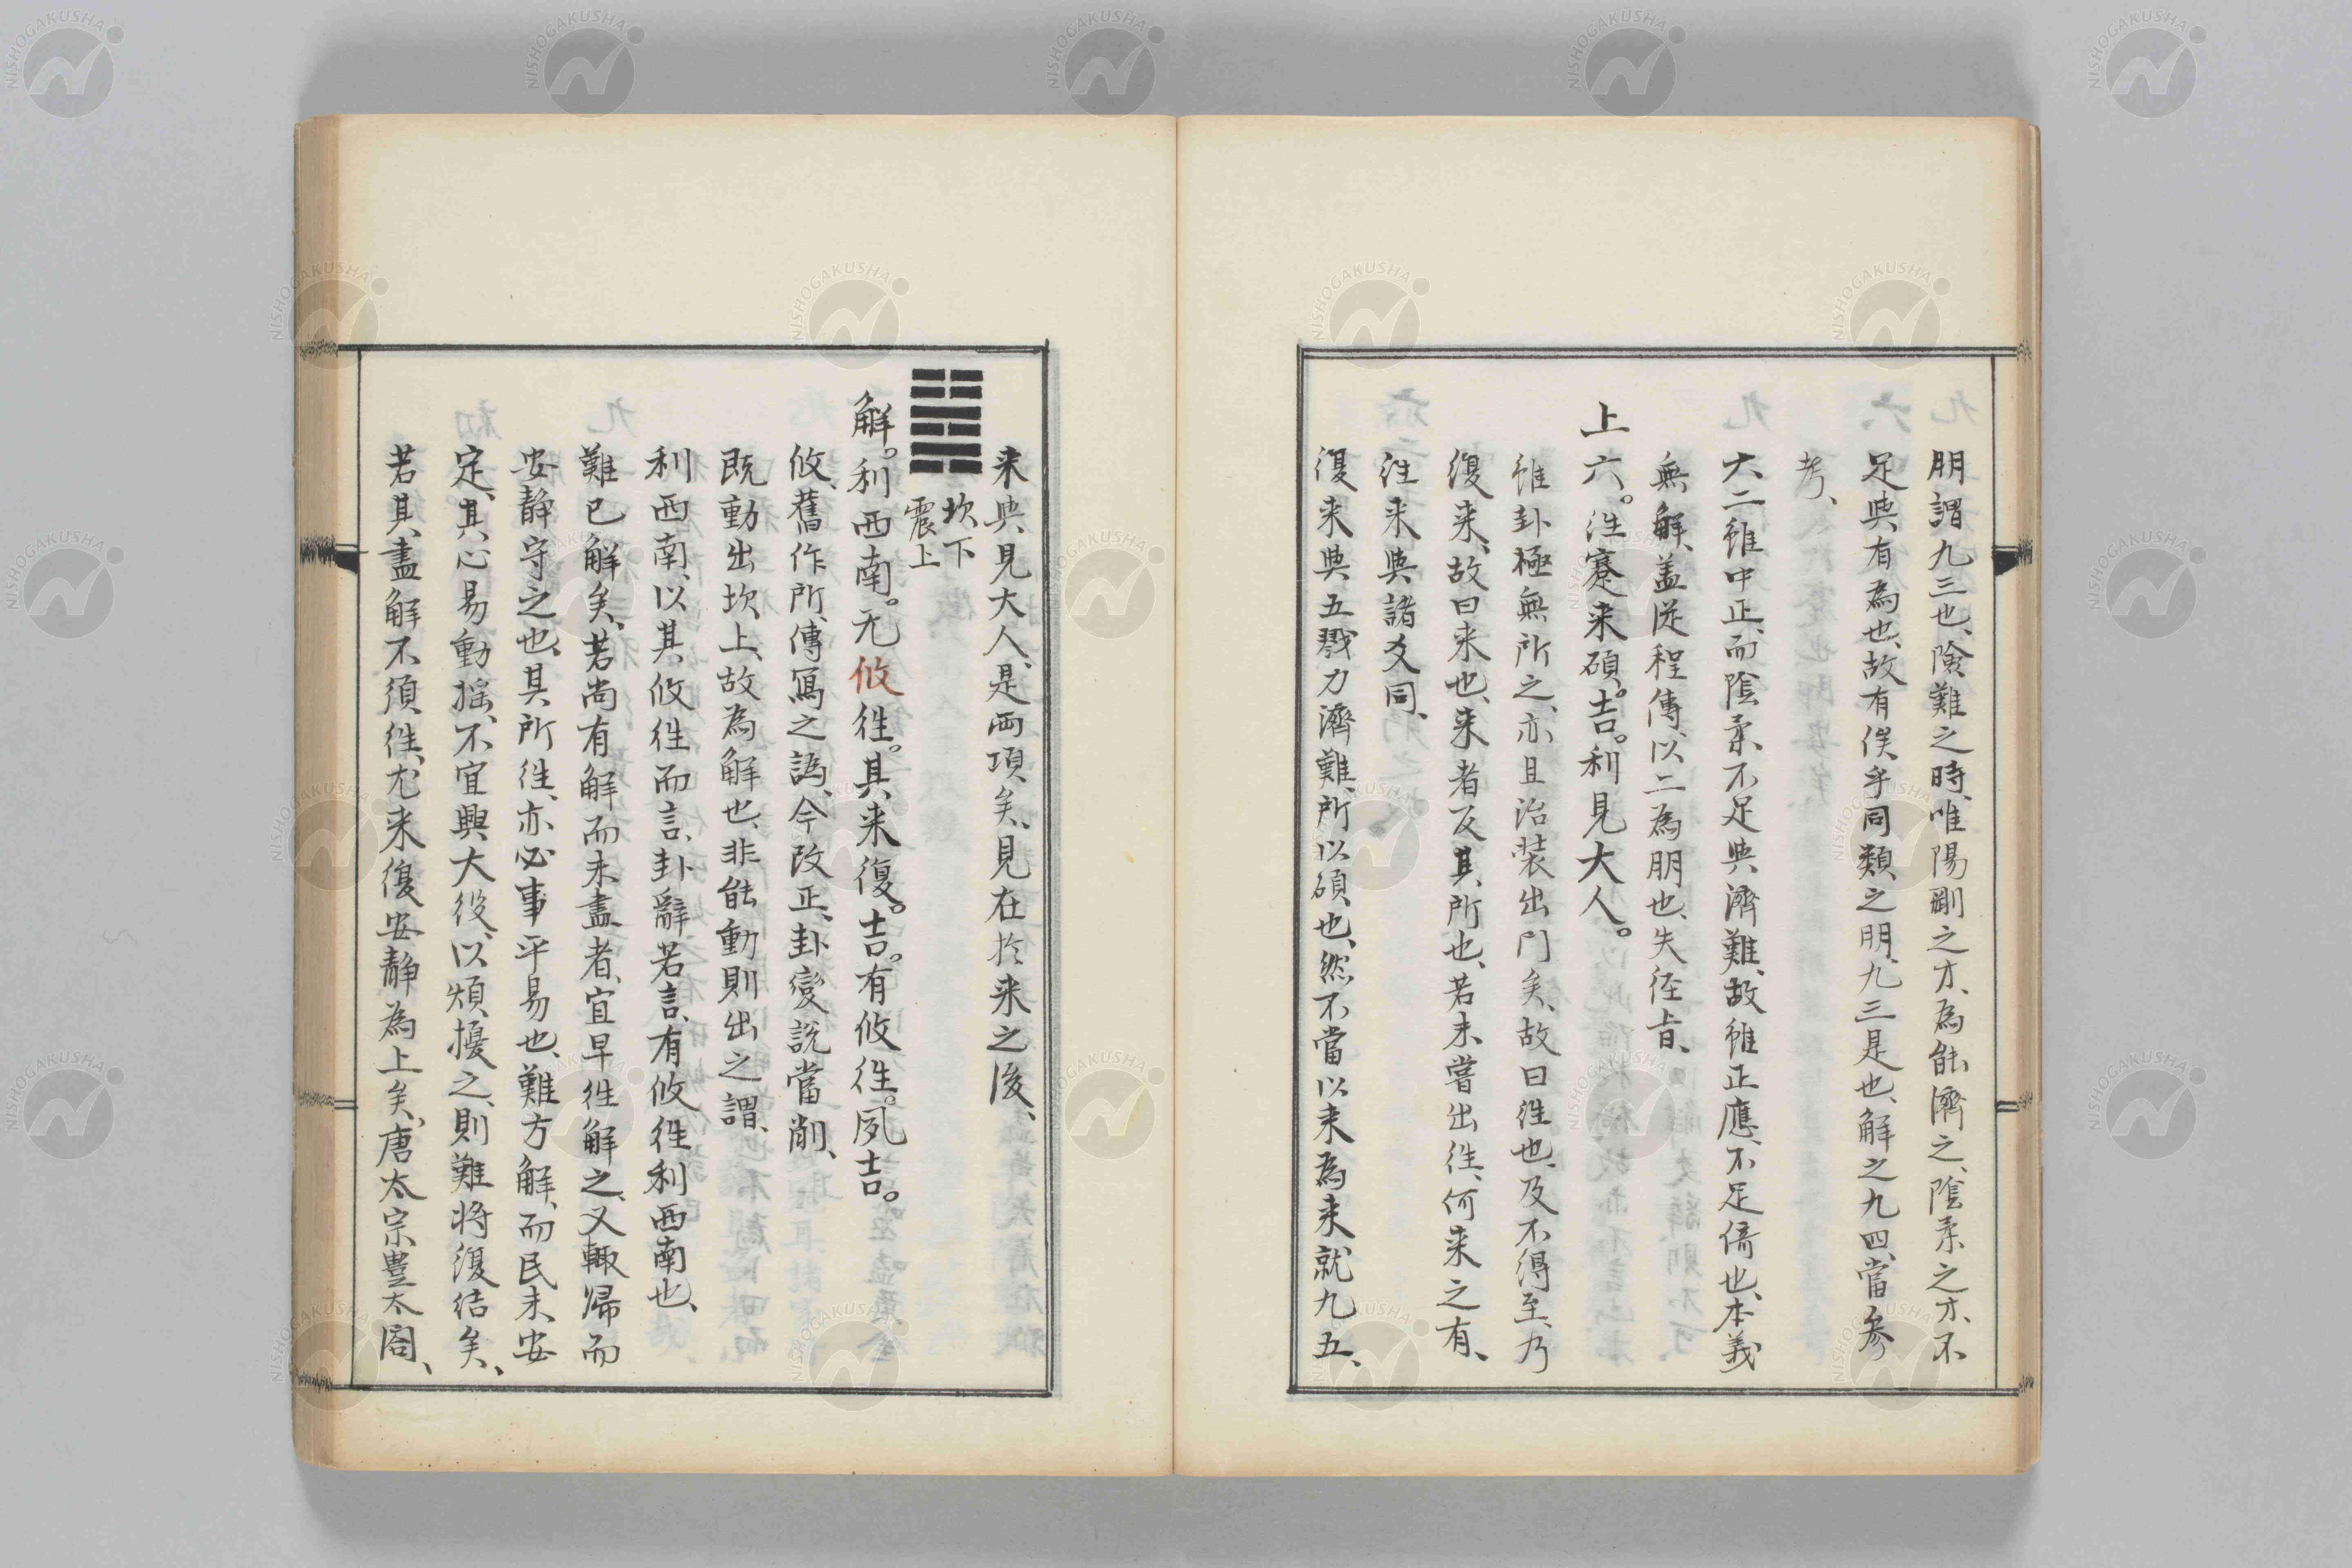 朋謂九三也、險難之時、唯陽剛之才、為能濟之、陰柔之才、不
足與有為也、故有俟乎同類之朋、九三是也、解之九四、當參
考、
六二雖中正、而陰柔不足與濟難、故雖正應、不足倚也、本義
無解、蓋從程傳、以二為朋也、失經旨、
上六。往蹇来碩。吉。利見大人。
雖卦極無所之、亦且治装出門矣、故曰往也、及不得至、乃
復来、故曰来也、来者反其所也、若未嘗出往、何来之有、
往来與諸爻同、
復来與五戮力濟難、所以碩也、然不當以来為来就九五、
来與見大人、是兩項矣、見在於来之後、
坎下
震上
解。利西南。无攸往。其来復。吉。有攸往。夙吉。
攸、舊作所、傳寫之譌、今改正、卦變說當削、
既動出坎上、故為解也、非能動則出之謂、
利西南、以其攸往而言、卦辭若言、有攸往利西南也、
難已解矣、若尚有解而未盡者、宜早往解之、又輙歸而
安静守之也、其所往、亦必事平易也、難方解、而民未安
定、其心易動揺、不宜興大役、以煩擾之、則難将復結矣、
若其盡解不須往、尤来復安静為上矣、唐太宗豊太閤、